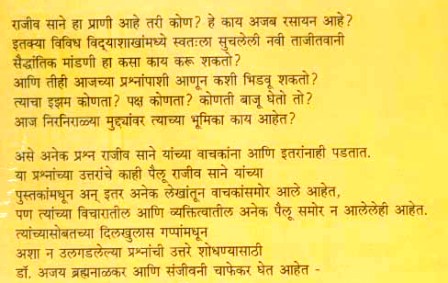 राजीव साने हा प्राणी आहे तरी कोण? हे काय अजब रसायन आहे?
इतक्या विविध विद्याशाखांमध्ये स्वतःला सुचलेली नवी ताजीतवानी
सैद्धांतिक मांडणी हा कसा काय करू शकतो?
आणि तीही आजच्या प्रश्नांपाशी आणून कशी भिडवू शकतो?
त्याचा इझम कोणता? पक्ष कोणता? कोणती बाजू घेतो तो?
आज निरनिराळ्या मुद्द्यांवर त्याच्या भूमिका काय आहेत?
असे अनेक प्रश्न राजीव साने यांच्या वाचकांना आणि इतरांनाही पडतात.
या प्रश्नांच्या उत्तरांचे काही पैलू राजीव साने यांच्या
पुस्तकांमधून अन् इतर अनेक लेखांतून वाचकांसमोर आले आहेत,
पण त्यांच्या विचारातील आणि व्यक्तित्वातील अनेक पैलू समोर न आलेलेही आहेत.
त्यांच्यासोबतच्या दिलखुलास गप्पांमधून
अशा न उलगडलेल्या प्रश्नांची उत्तरे शोधण्यासाठी
डॉ. अजय ब्रह्मनाळकर आणि संजीवनी चाफेकर घेत आहेत -